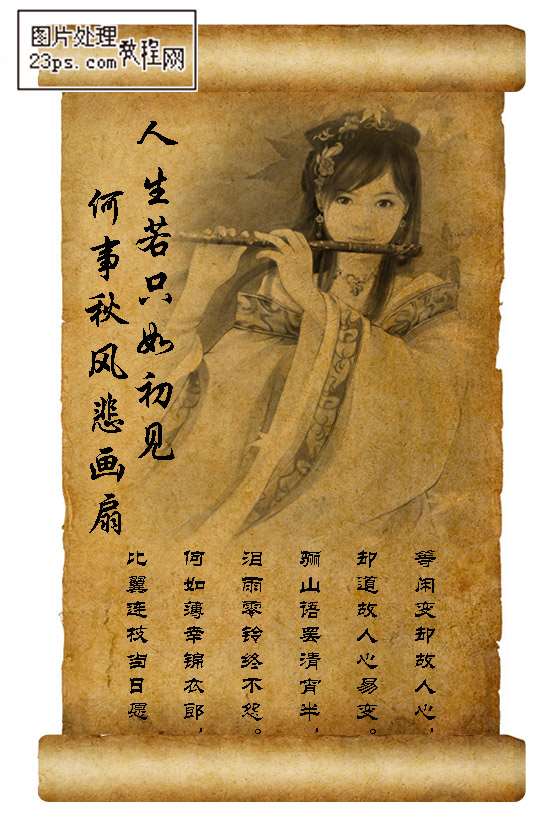 图片处理
23ps.com
教程网
人生若只如初见
何事秋风悲画扇
等闲变却故人心,
却道故人心易变。
骊山语罢清宵半,
泪雨零铃终不怨。
何如薄幸锦衣郎,
比翼连枝当日愿